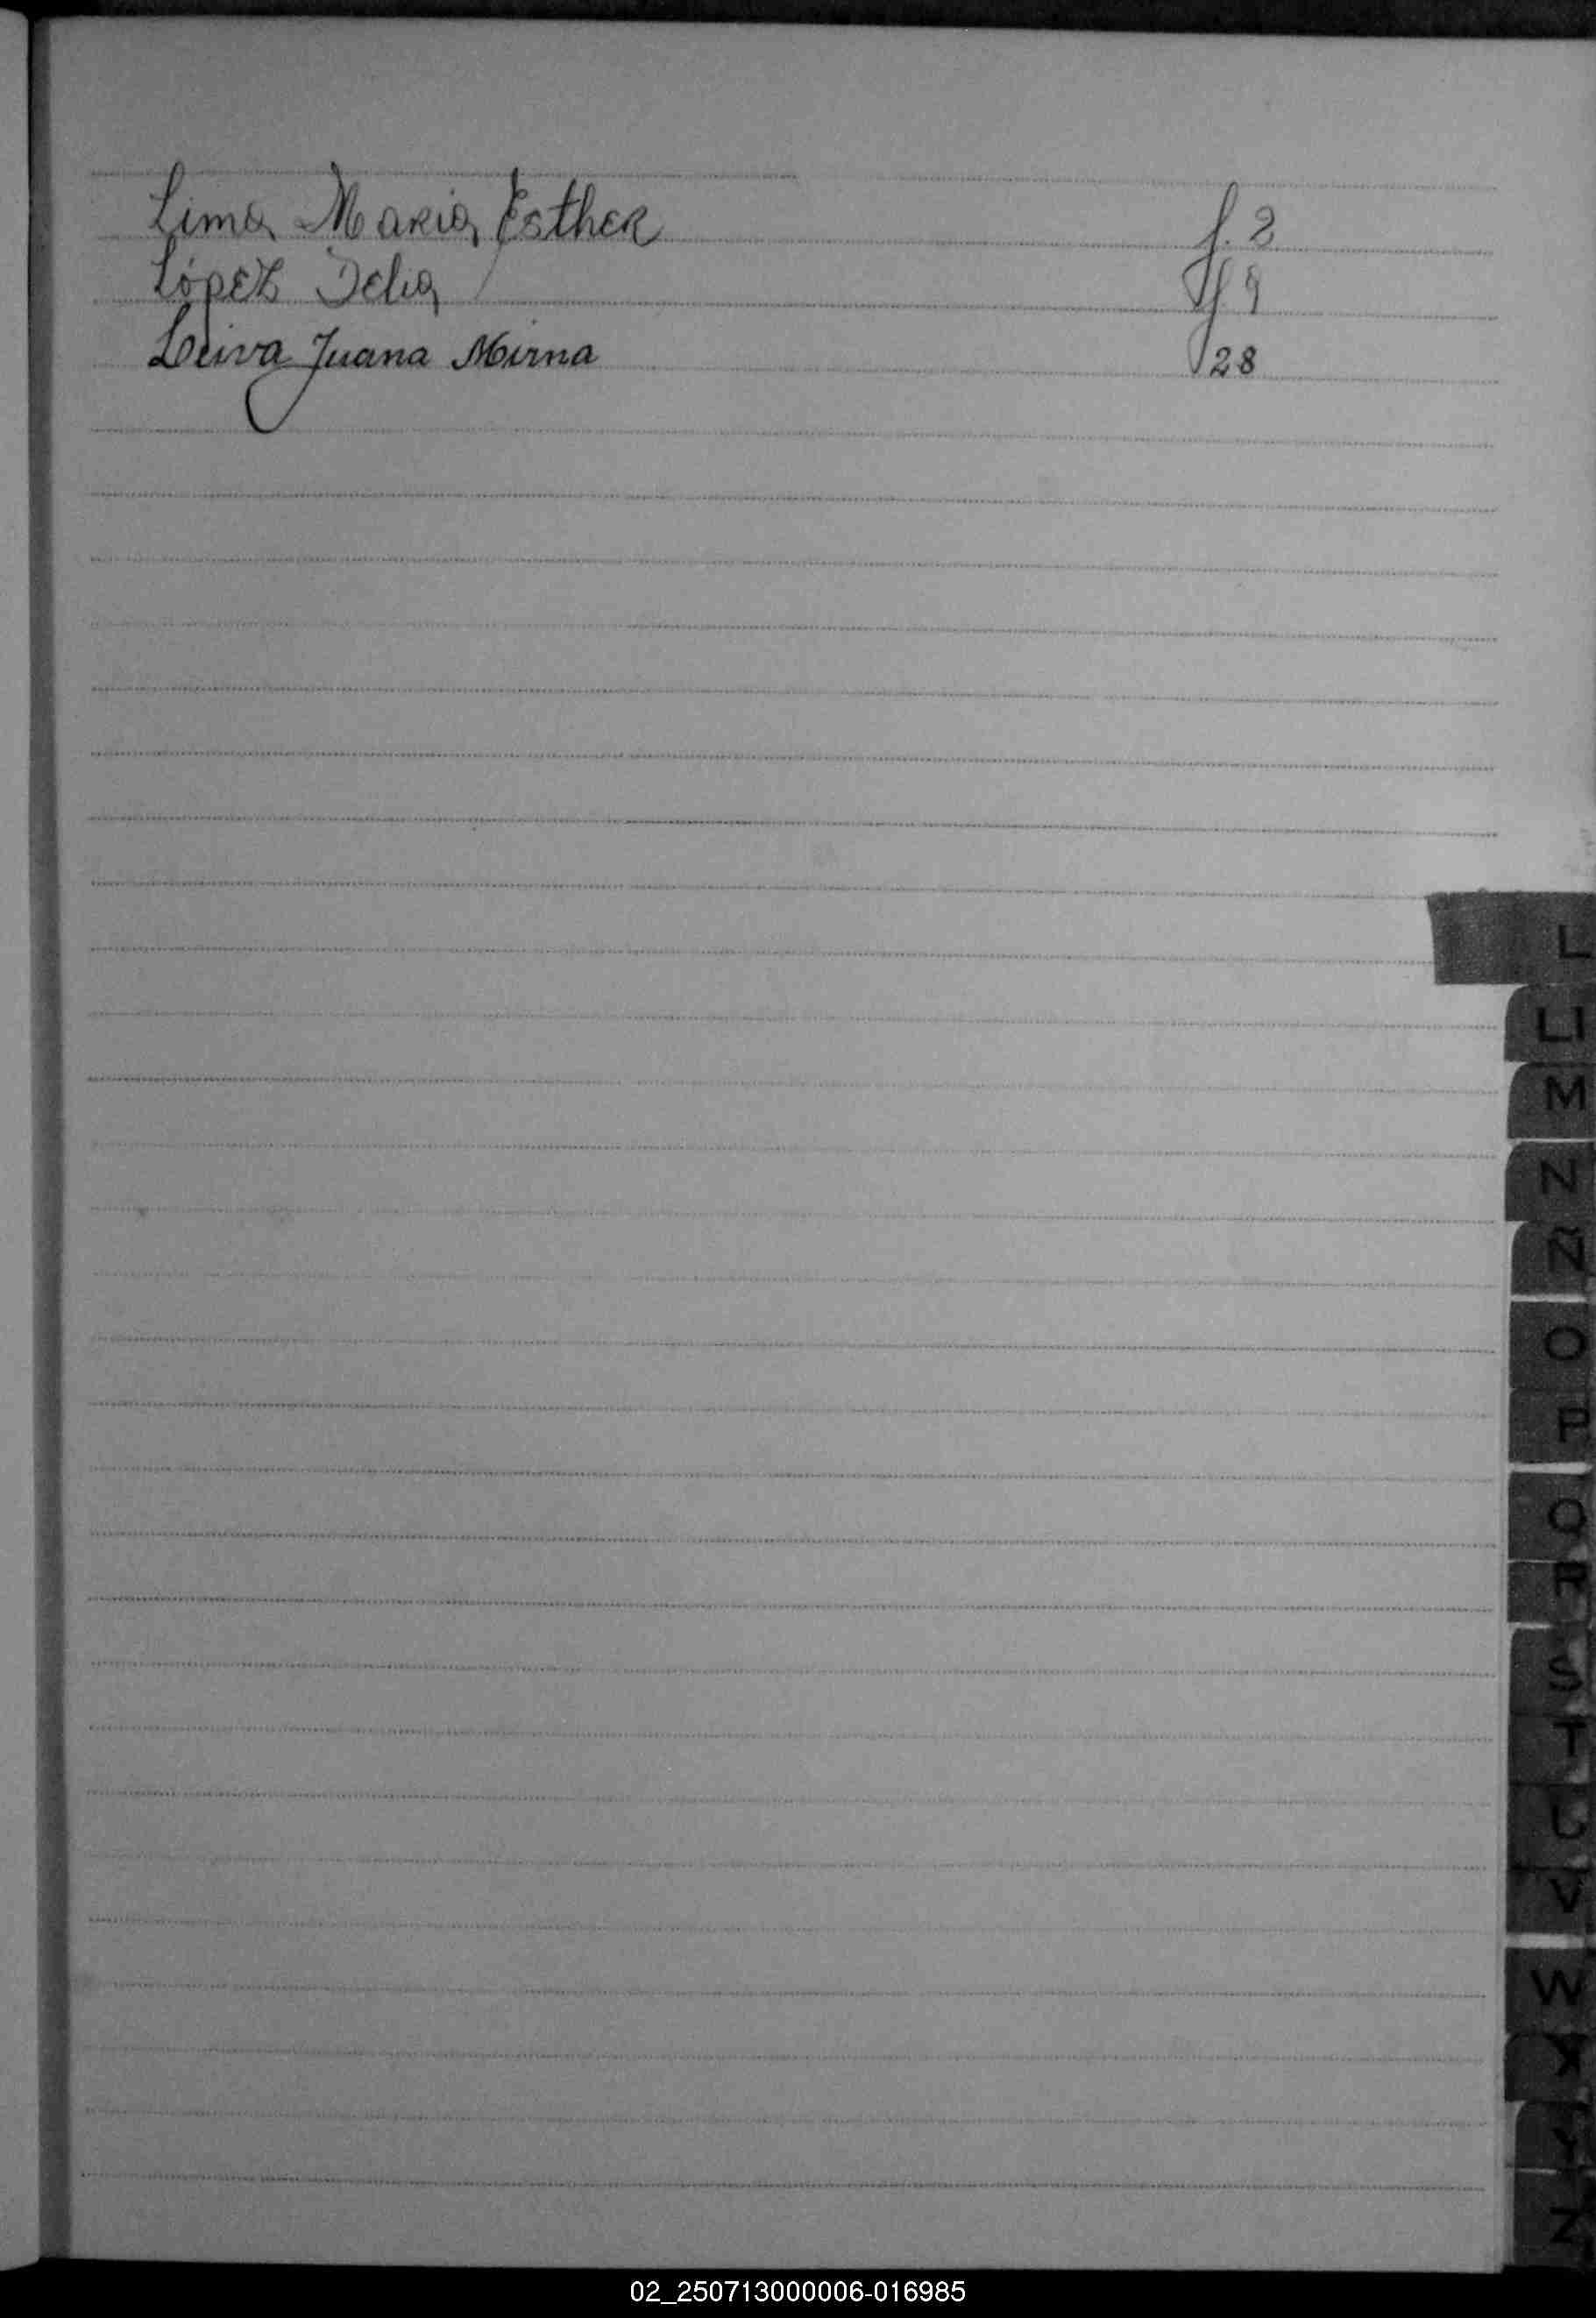 Lima Maria Esther f. 2
López Delia f 9
Leiva Juana Mirna 28
L
Ll
M
N
Ñ
O
P
Q
R
S
T
U
V
W
X
Y
Z
02_250713000006-016985